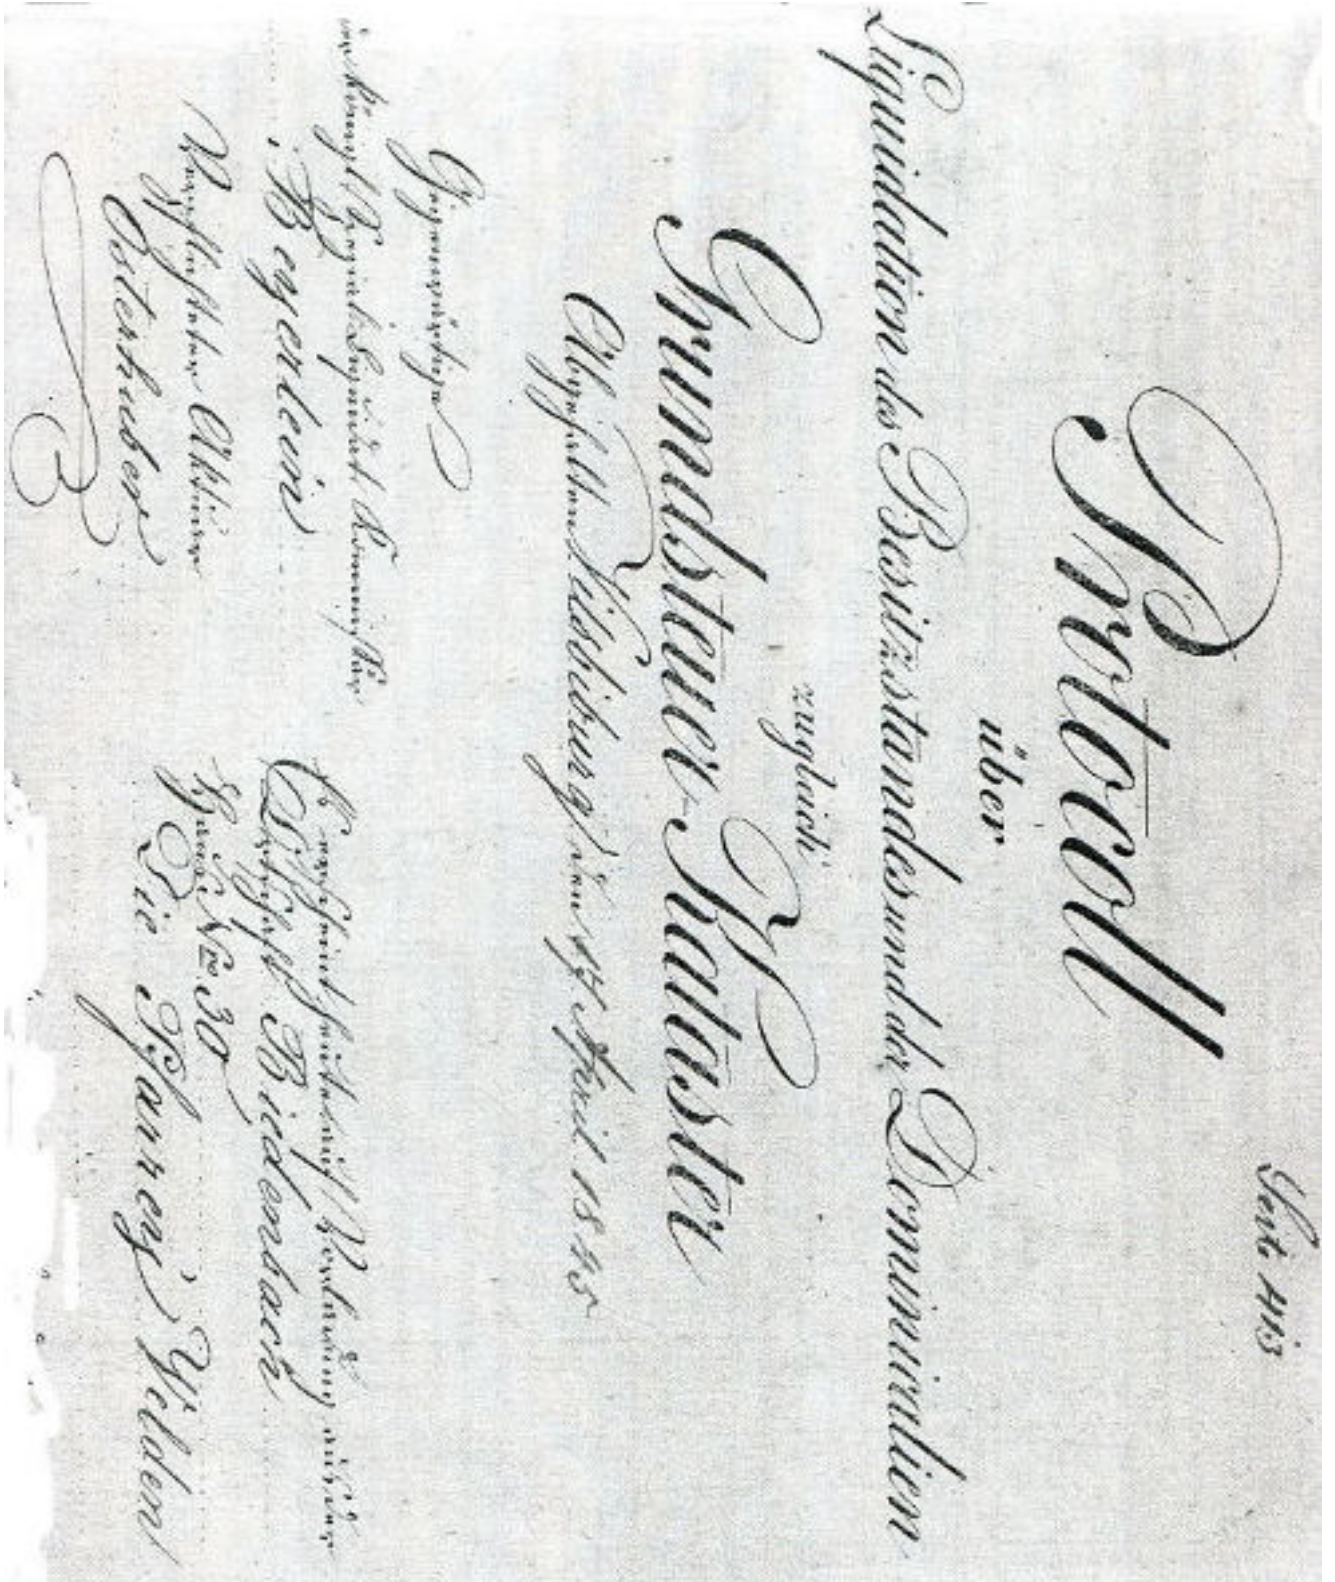 Seite 413
Protocoll
über
Liquidation des Besitzstandes und der Dominicalien
zugleich
Grundsteuer-Kataster
Abgehalten Vilsbiburg den 17 April 1845
Gegenwärtige
der königl. Spezial Liquidat. Kommissär
Beyerlein
Verpflichteter Aktuar
Osterhuber
Erscheint heute auf Vorladung aus der
Ortschaft Biedenbach
Haus Nro 30
Die Pfarrey Velden